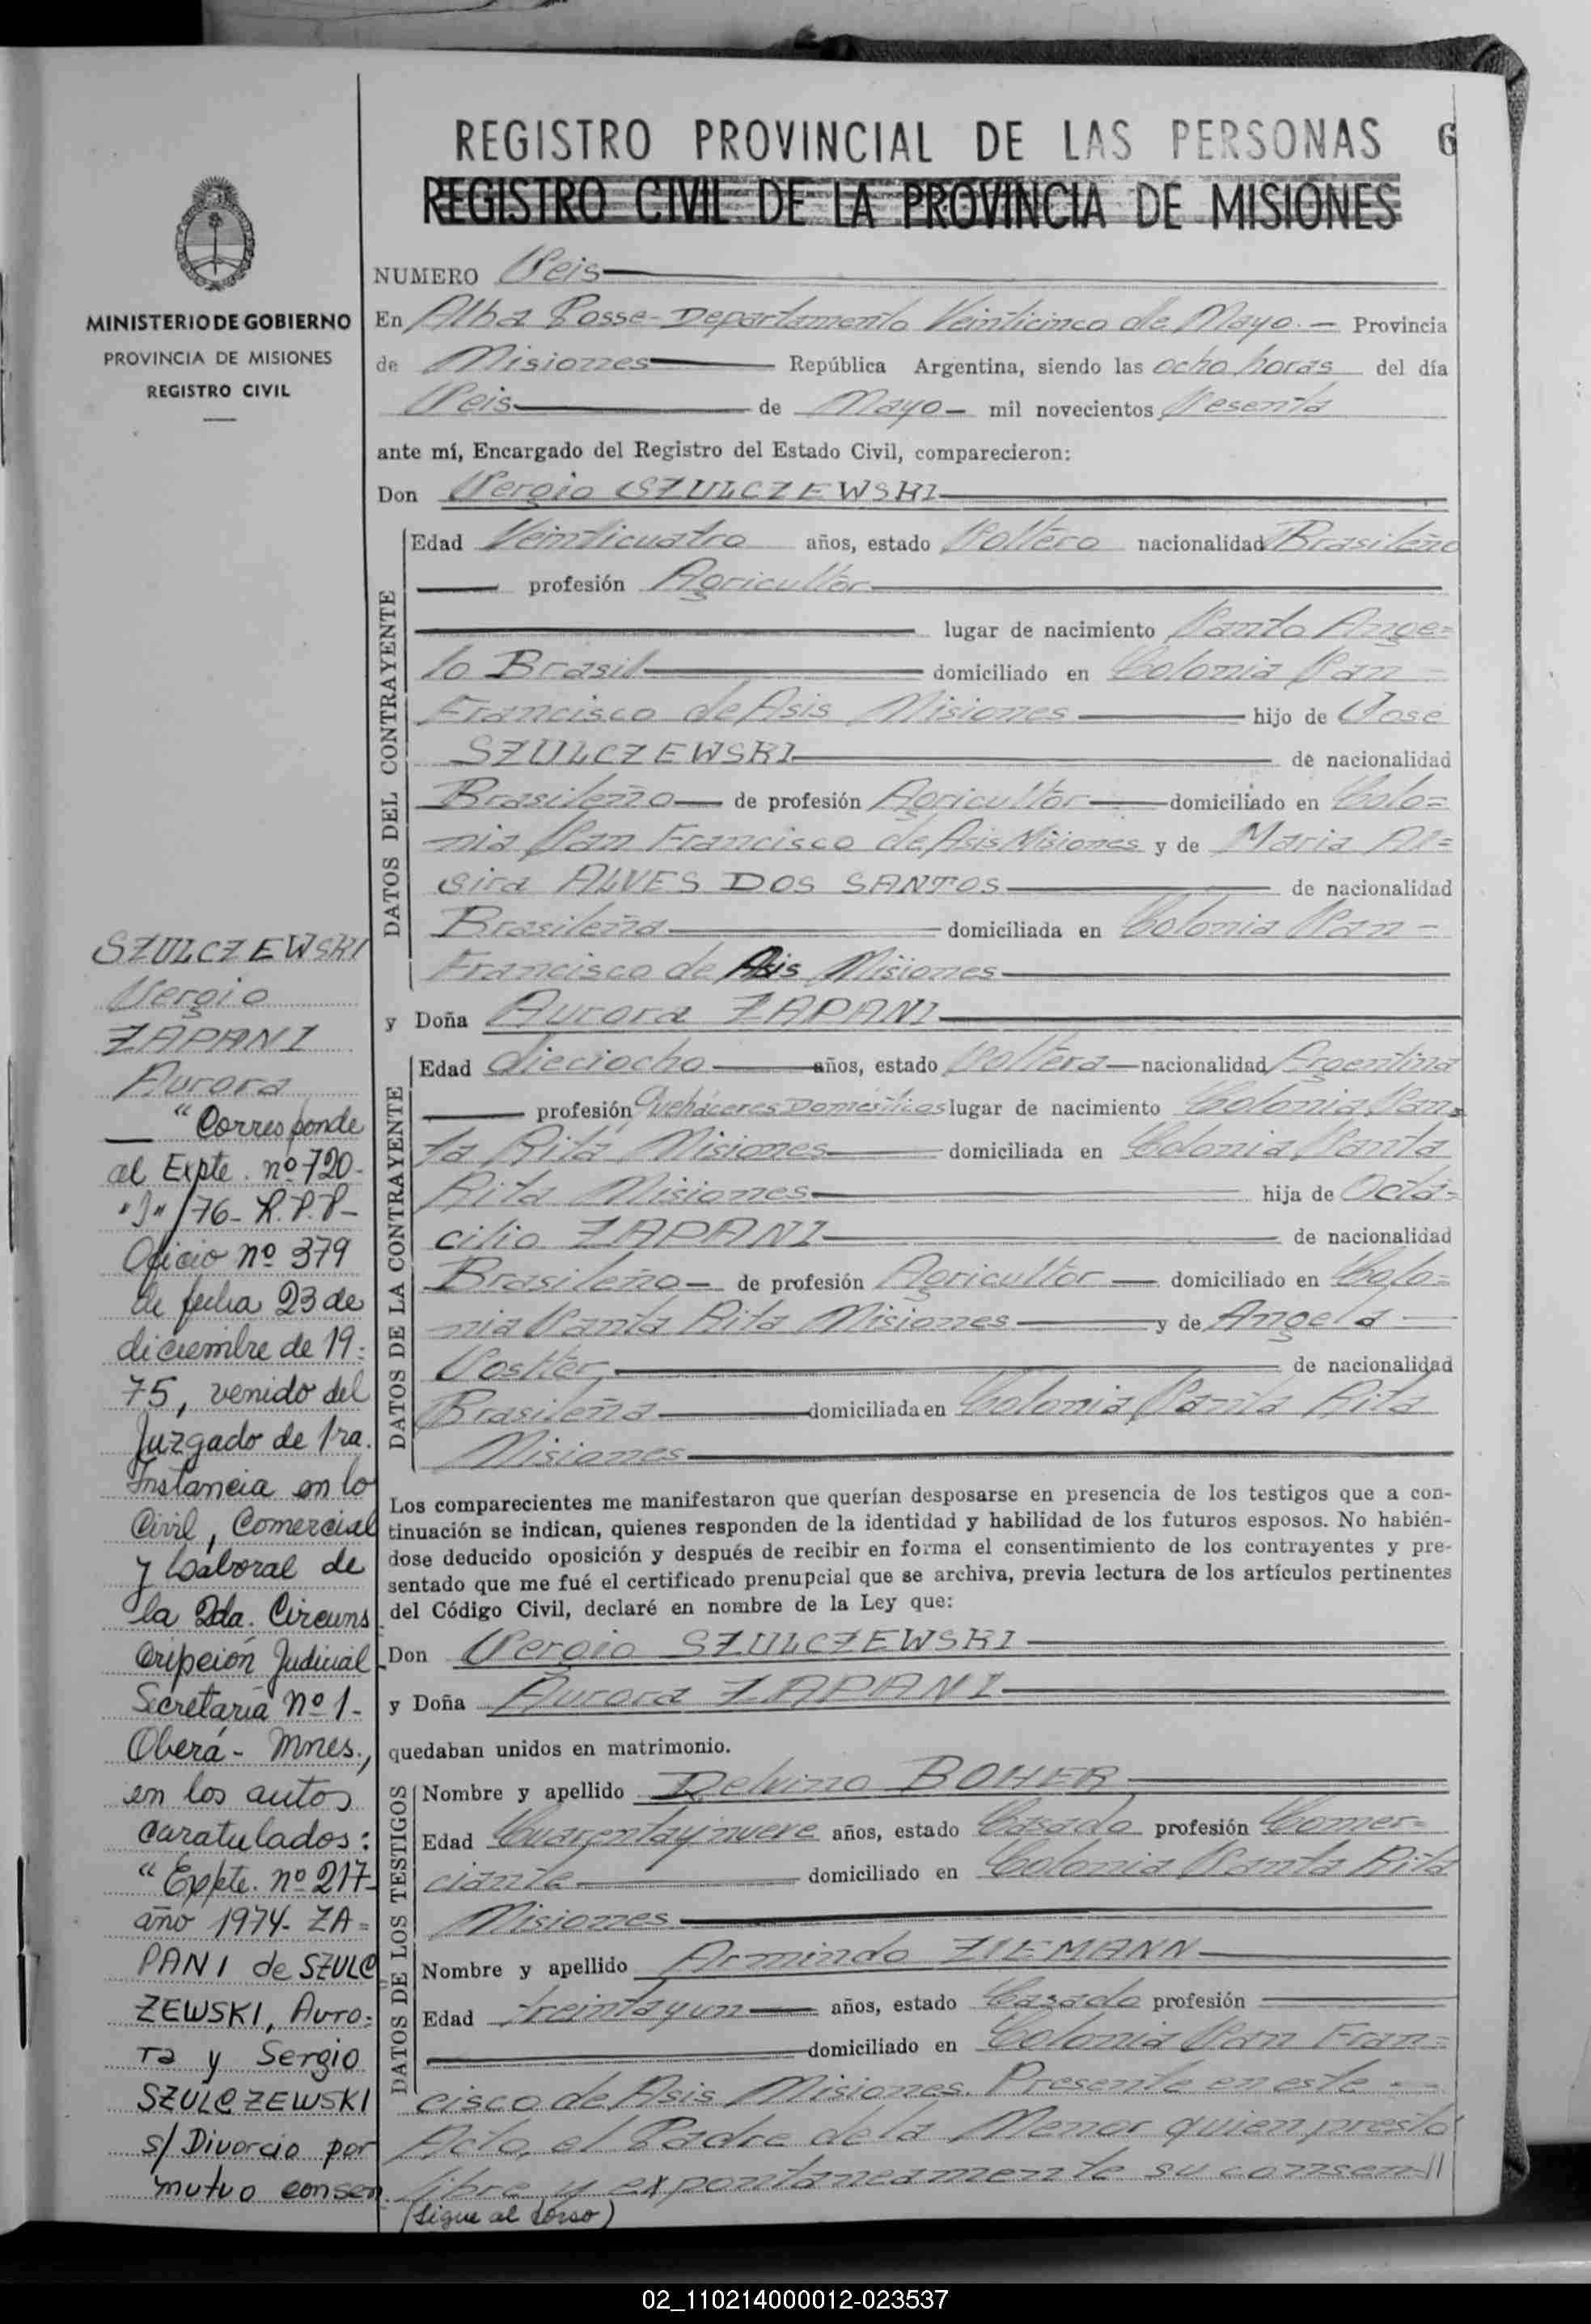 REGISTRO PROVINCIAL DE LAS PERSONAS 6
REGISTRO CIVIL DE LA PROVINCIA DE MISIONES
MINISTERIO DE GOBIERNO
PROVINCIA DE MISIONES
REGISTRO CIVIL
NUMERO Seis
En Alba Posse - Departamento Veinticinco de Mayo. - Provincia
de Misiones República Argentina, siendo las ocho horas del día
Seis de Mayo - mil novecientos Sesenta
ante mí, Encargado del Registro del Estado Civil, comparecieron:
Don Sergio SZULCZEWSKI
DATOS DEL CONTRAYENTE
Edad Veinticuatro años, estado Soltero nacionalidad Brasileño
profesión Agricultor
lugar de nacimiento Santo Ange=
lo Brasil domiciliado en Colonia San -
Francisco de Asis Misiones hijo de Jose
SZULCZEWSKI de nacionalidad
Brasileño de profesión Agricultor domiciliado en Colo=
nia San Francisco de Asis Misiones y de Maria Al=
sira ALVES DOS SANTOS de nacionalidad
Brasileña domiciliada en Colonia San -
Francisco de Asis Misiones
y Doña Aurora ZAPANI
DATOS DE LA CONTRAYENTE
Edad dieciocho años, estado Soltera nacionalidad Argentina
profesión Quehaceres Domésticos lugar de nacimiento Colonia San=
ta Rita Misiones domiciliada en Colonia Santa
Rita Misiones hija de Octa=
cilio ZAPANI de nacionalidad
Brasileño de profesión Agricultor domiciliado en Colo=
nia Santa Rita Misiones y de Angela
de nacionalidad
Brasileña domiciliada en Colonia Santa Rita
Misiones
Los comparecientes me manifestaron que querían desposarse en presencia de los testigos que a con-
tinuación se indican, quienes responden de la identidad y habilidad de los futuros esposos. No habién-
dose deducido oposición y después de recibir en forma el consentimiento de los contrayentes y pre-
sentado que me fué el certificado prenupcial que se archiva, previa lectura de los artículos pertinentes
del Código Civil, declaré en nombre de la Ley que:
Don Sergio SZULCZEWSKI
y Doña Aurora ZAPANI
quedaban unidos en matrimonio.
DATOS DE LOS TESTIGOS
Nombre y apellido Delvino BOHER
Edad Cuarentaynueve años, estado Casado profesión Comer=
ciante domiciliado en Colonia Santa Rita
Misiones
Nombre y apellido Armindo ZIEMANN
Edad treintayun años, estado Casado profesión
domiciliado en Colonia San Fran=
cisco de Asis Misiones. Presente en este
Acto, el Padre de la Menor quien presto
libre y expontaneamente su consen//
(Sigue al dorso)
SZULCZEWSKI
Sergio
ZAPANI
Aurora
"Corresponde
al Expte. nº 720-
"J"/76- R.P.P-
Oficio nº 379
de fecha 23 de
diciembre de 19=
75, venido del
Juzgado de 1ra.
Instancia en lo
Civil, Comercial
y Laboral de
la 2da. Circuns
cripción Judicial
Secretaría nº 1-
Oberá - Mnes.,
en los autos
caratulados:
"Expte. nº 217-
año 1974- ZA=
PANI de SZULC
ZEWSKI, Auro=
ra y Sergio
SZULCZEWSKI
s/ Divorcio por
mutuo consen
02_110214000012-023537